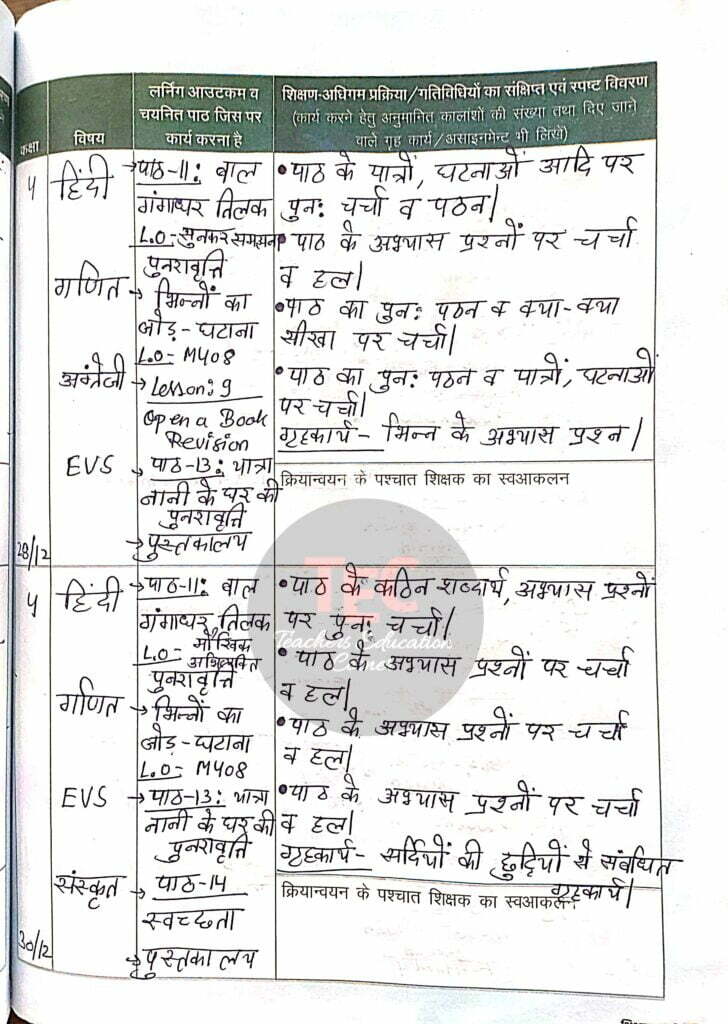 लर्निंग आउटकम व
चयनित पाठ जिस पर
कार्य करना है
शिक्षण-अधिगम प्रक्रिया/गतिविधियों का संक्षिप्त एवं स्पष्ट विवरण
(कार्य करने हेतु अनुमानित कालांशों की संख्या तथा दिए जाने
वाले गृह कार्य/असाइनमेन्ट भी लिखें)
कक्षा
विषय
५
हिंदी
→पाठ-11: बाल
गंगाधर तिलक
L.O-सुनकर समझना
पुनरावृत्ति
गणित
→ भिन्नों का
जोड़-घटाना
L.O- M408
अंग्रेजी
→Lesson:9
Open a Book
Revision
EVS
→ पाठ-13: यात्रा
नानी के घर की
पुनरावृत्ति
→पुस्तकालय
28/12
•पाठ के पात्रों, घटनाओं आदि पर
पुन: चर्चा व पठन|
•पाठ के अभ्यास प्रश्नों पर चर्चा
व हल|
•पाठ का पुन: पठन व क्या-क्या
सीखा पर चर्चा|
•पाठ का पुन: पठन व पात्रों, घटनाओं
पर चर्चा|
गृहकार्य- भिन्न के अभ्यास प्रश्न|
क्रियान्वयन के पश्चात शिक्षक का स्वआकलन
TEC
Teachers Education
५
हिंदी
→पाठ-11: बाल
गंगाधर तिलक
L.O- मौखिक
अभिव्यक्ति
पुनरावृत्ति
गणित
→भिन्नों का
जोड़-घटाना
L.O- M408
EVS
→पाठ-13: यात्रा
नानी के घर की
पुनरावृत्ति
संस्कृत
→ पाठ-14
स्वच्छता
→पुस्तकालय
30/12
•पाठ के कठिन शब्दार्थ, अभ्यास प्रश्नों
पर पुन: चर्चा|
•पाठ के अभ्यास प्रश्नों पर चर्चा
व हल|
•पाठ के अभ्यास प्रश्नों पर चर्चा
व हल|
•पाठ के अभ्यास प्रश्नों पर चर्चा
व हल|
गृहकार्य- सर्दियों की छुट्टियों से संबंधित
गृहकार्य|
क्रियान्वयन के पश्चात शिक्षक का स्वआकलन